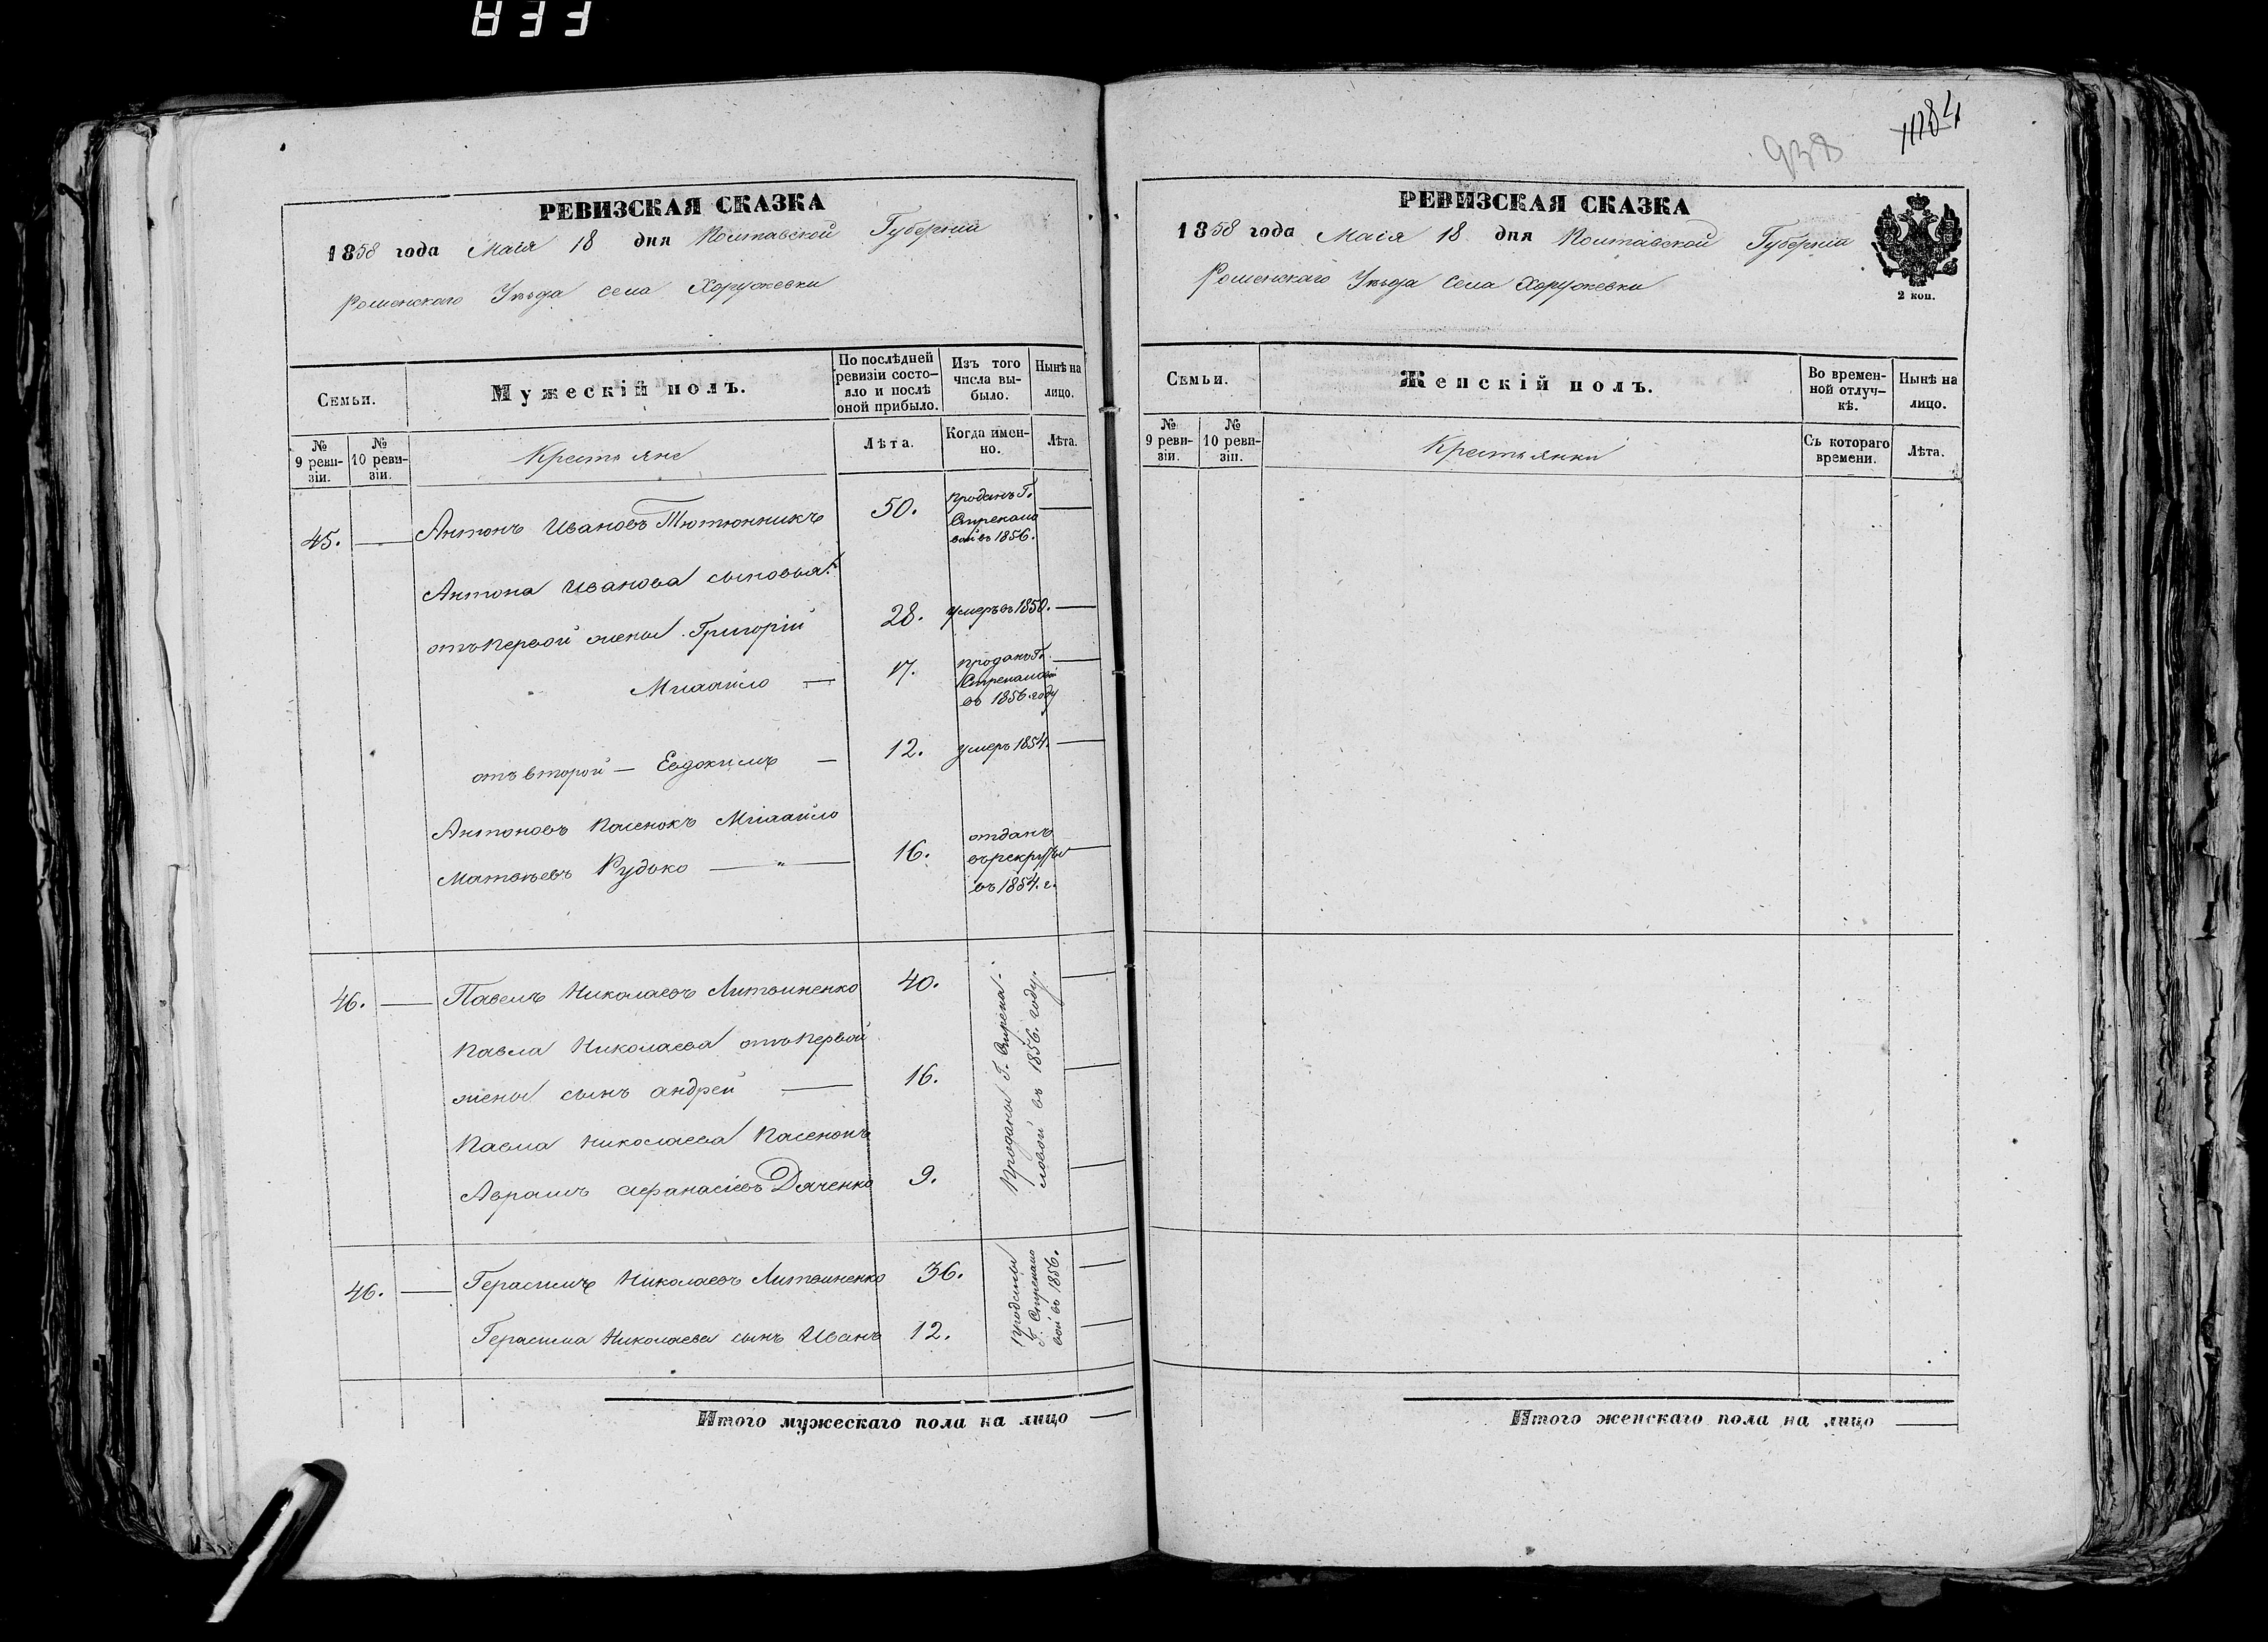 РЕВИЗСКАЯ СКАЗКА
1858 года Маія 18 дня Полтавской Губерніи
Роменскаго Уѣзда села Хоружевки
Семьи.
Мужескій полъ.
По послѣдней ревизіи состо-
яло и послѣ оной прибыло.
Изъ того числа вы-
было.
Нынѣ на лицо.
№ 9 реви-
зіи.
№ 10 реви-
зіи.
Крестьяне
Лѣта.
Когда имен-
но.
Лѣта.
45. — Антонъ Ивановъ Тютюнникъ 50. проданъ Г.
Стрекало
вой въ 1856. —
Антона Иванова сыновья:
отъ первой жены Григорій 28. умеръ въ 1850. —
Михайло — 17. проданъ Г.
Стрекаловой
въ 1856 году —
отъ второй — Евдокимъ — 12. умеръ 1854. —
Антоновъ пасенокъ Михайло
Матвѣевъ Рудько — " — 16. отданъ
въ рекруты
въ 1854. г. —
46. — Павелъ Николаевъ Литвиненко 40. —
Павла Николаева отъ первой
жены сынъ андрей — 16. —
Павла Николаева пасенокъ
Аврамъ афанасіевъ Дяченко 9. —
Проданы Г. Стрека-
ловой въ 1856. году.
46. — Герасимъ Николаевъ Литвиненко 36. —
Герасима Николаева сынъ Иванъ 12. —
Г. Стрекало
вой въ 1856.
Итого мужескаго пола на лицо —
938
РЕВИЗСКАЯ СКАЗКА
1858 года Маія 18 дня Полтавской Губерніи
Роменскаго Уѣзда села Хоружевки
2 коп.
Семьи.
Женскій полъ.
Во времен-
ной отлуч-
кѣ.
Нынѣ на лицо.
№ 9 реви-
зіи.
№ 10 реви-
зіи.
Крестьянки
Съ котораго времени.
Лѣта.
Итого женскаго пола на лицо —